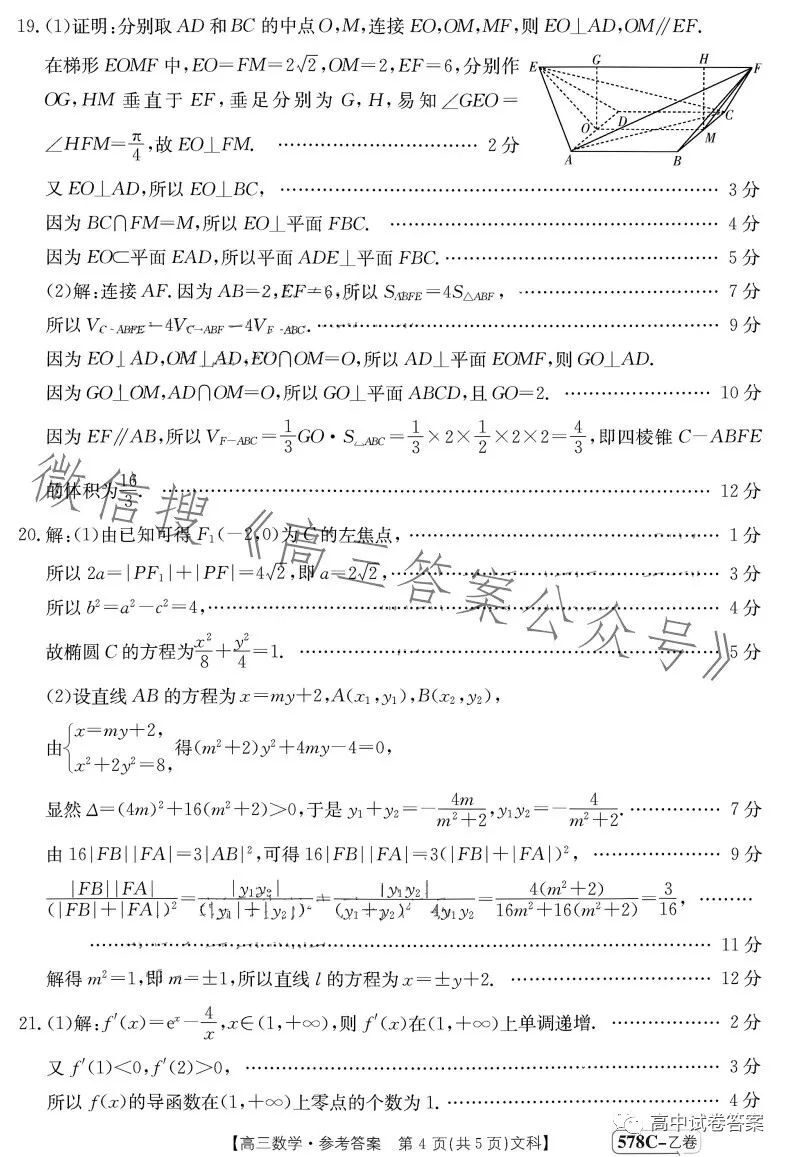 19. (1)证明:分别取 AD 和 BC 的中点 O,M,连接 EO,OM,MF,则 EO⊥AD,OM∥EF.
在梯形 EOMF 中,EO=FM=2√2,OM=2,EF=6,分别作
OG,HM 垂直于 EF,垂足分别为 G,H,易知∠GEO=
∠HFM=π/4,故 EO⊥FM. …… 2 分
E G H F
O D C
M
A B
又 EO⊥AD,所以 EO⊥BC, …… 3 分
因为 BC∩FM=M,所以 EO⊥平面 FBC. …… 4 分
因为 EO⊂平面 EAD,所以平面 ADE⊥平面 FBC. …… 5 分
(2)解:连接 AF. 因为 AB=2,EF=6,所以 S_{ABFE}=4S_{△ABF}, …… 7 分
所以 V_{C-ABFE}=4V_{C-ABF}=4V_{F-ABC}. …… 9 分
因为 EO⊥AD,OM⊥AD,EO∩OM=O,所以 AD⊥平面 EOMF,则 GO⊥AD.
因为 GO⊥OM,AD∩OM=O,所以 GO⊥平面 ABCD,且 GO=2. …… 10 分
因为 EF∥AB,所以 V_{F-ABC}=1/3 GO·S_{△ABC}=1/3×2×1/2×2×2=4/3,即四棱锥 C-ABFE
的体积为16/3. …… 12 分
20. 解:(1)由已知可得 F₁(-2,0)为 C 的左焦点, …… 1 分
所以 2a=|PF₁|+|PF|=4√2,即 a=2√2, …… 3 分
所以 b²=a²-c²=4, …… 4 分
故椭圆 C 的方程为x²/8+y²/4=1. …… 5 分
(2)设直线 AB 的方程为 x=my+2,A(x₁,y₁),B(x₂,y₂),
由{x=my+2,
x²+2y²=8,
得(m²+2)y²+4my-4=0,
显然 Δ=(4m)²+16(m²+2)>0,于是 y₁+y₂=-4m/(m²+2),y₁y₂=-4/(m²+2). …… 7 分
由 16|FB||FA|=3|AB|²,可得 16|FB||FA|=3(|FB|+|FA|)², …… 9 分
|FB||FA|/(|FB|+|FA|)²=|y₁y₂|/(|y₁|+|y₂|)²=|y₁y₂|/((y₁+y₂)² 4y₁y₂)=4(m²+2)/(16m²+16(m²+2))=3/16, ……
…… 11 分
解得 m²=1,即 m=±1,所以直线 l 的方程为 x=±y+2. …… 12 分
21. (1)解:f′(x)=eˣ-4/x,x∈(1,+∞),则 f′(x)在(1,+∞)上单调递增. …… 2 分
又 f′(1)<0,f′(2)>0, …… 3 分
所以 f(x)的导函数在(1,+∞)上零点的个数为 1. …… 4 分
微信搜《高三答案公众号》
高中试卷答案
【高三数学·参考答案 第 4 页(共 5 页)文科】 578C-乙卷